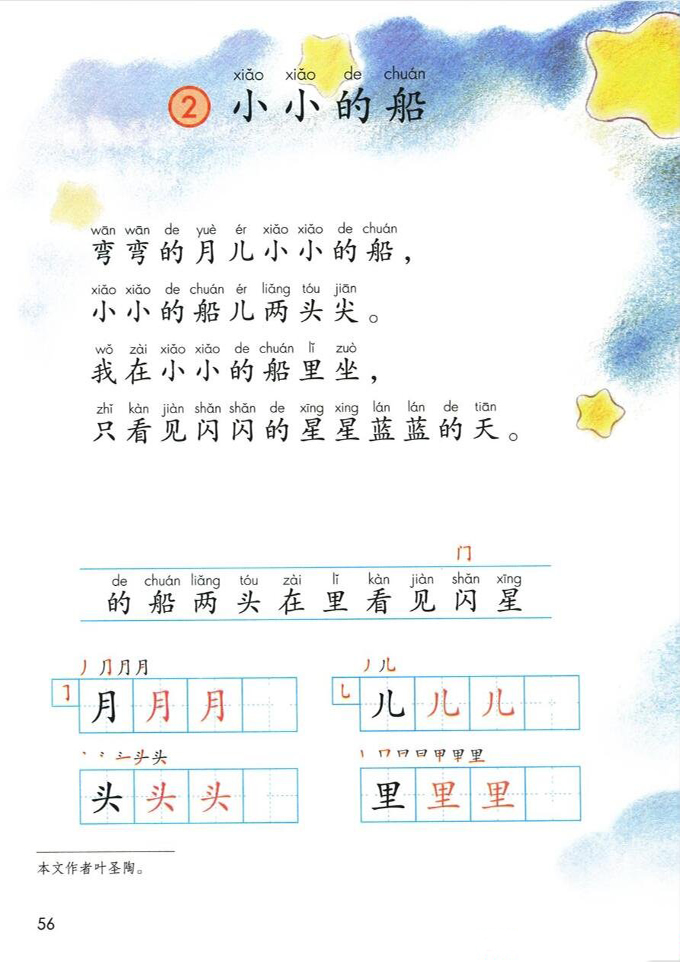 xiǎo xiǎo de chuán
2 小小的船
wān wān de yuè ér xiǎo xiǎo de chuán
弯弯的月儿小小的船，
xiǎo xiǎo de chuán ér liǎng tóu jiān
小小的船儿两头尖。
wǒ zài xiǎo xiǎo de chuán lǐ zuò
我在小小的船里坐，
zhǐ kàn jiàn shǎn shǎn de xīng xing lán lán de tiān
只看见闪闪的星星蓝蓝的天。
门
de chuán liǎng tóu zài lǐ kàn jiàn shǎn xīng
的船两头在里看见闪星
丿 ⺆ 月 月
㇆ 月 月 月
丿 儿
乚 儿 儿 儿
头 头
头 头 头
丨 冂 日 日 甲 甲 里
里 里 里
本文作者叶圣陶。
56